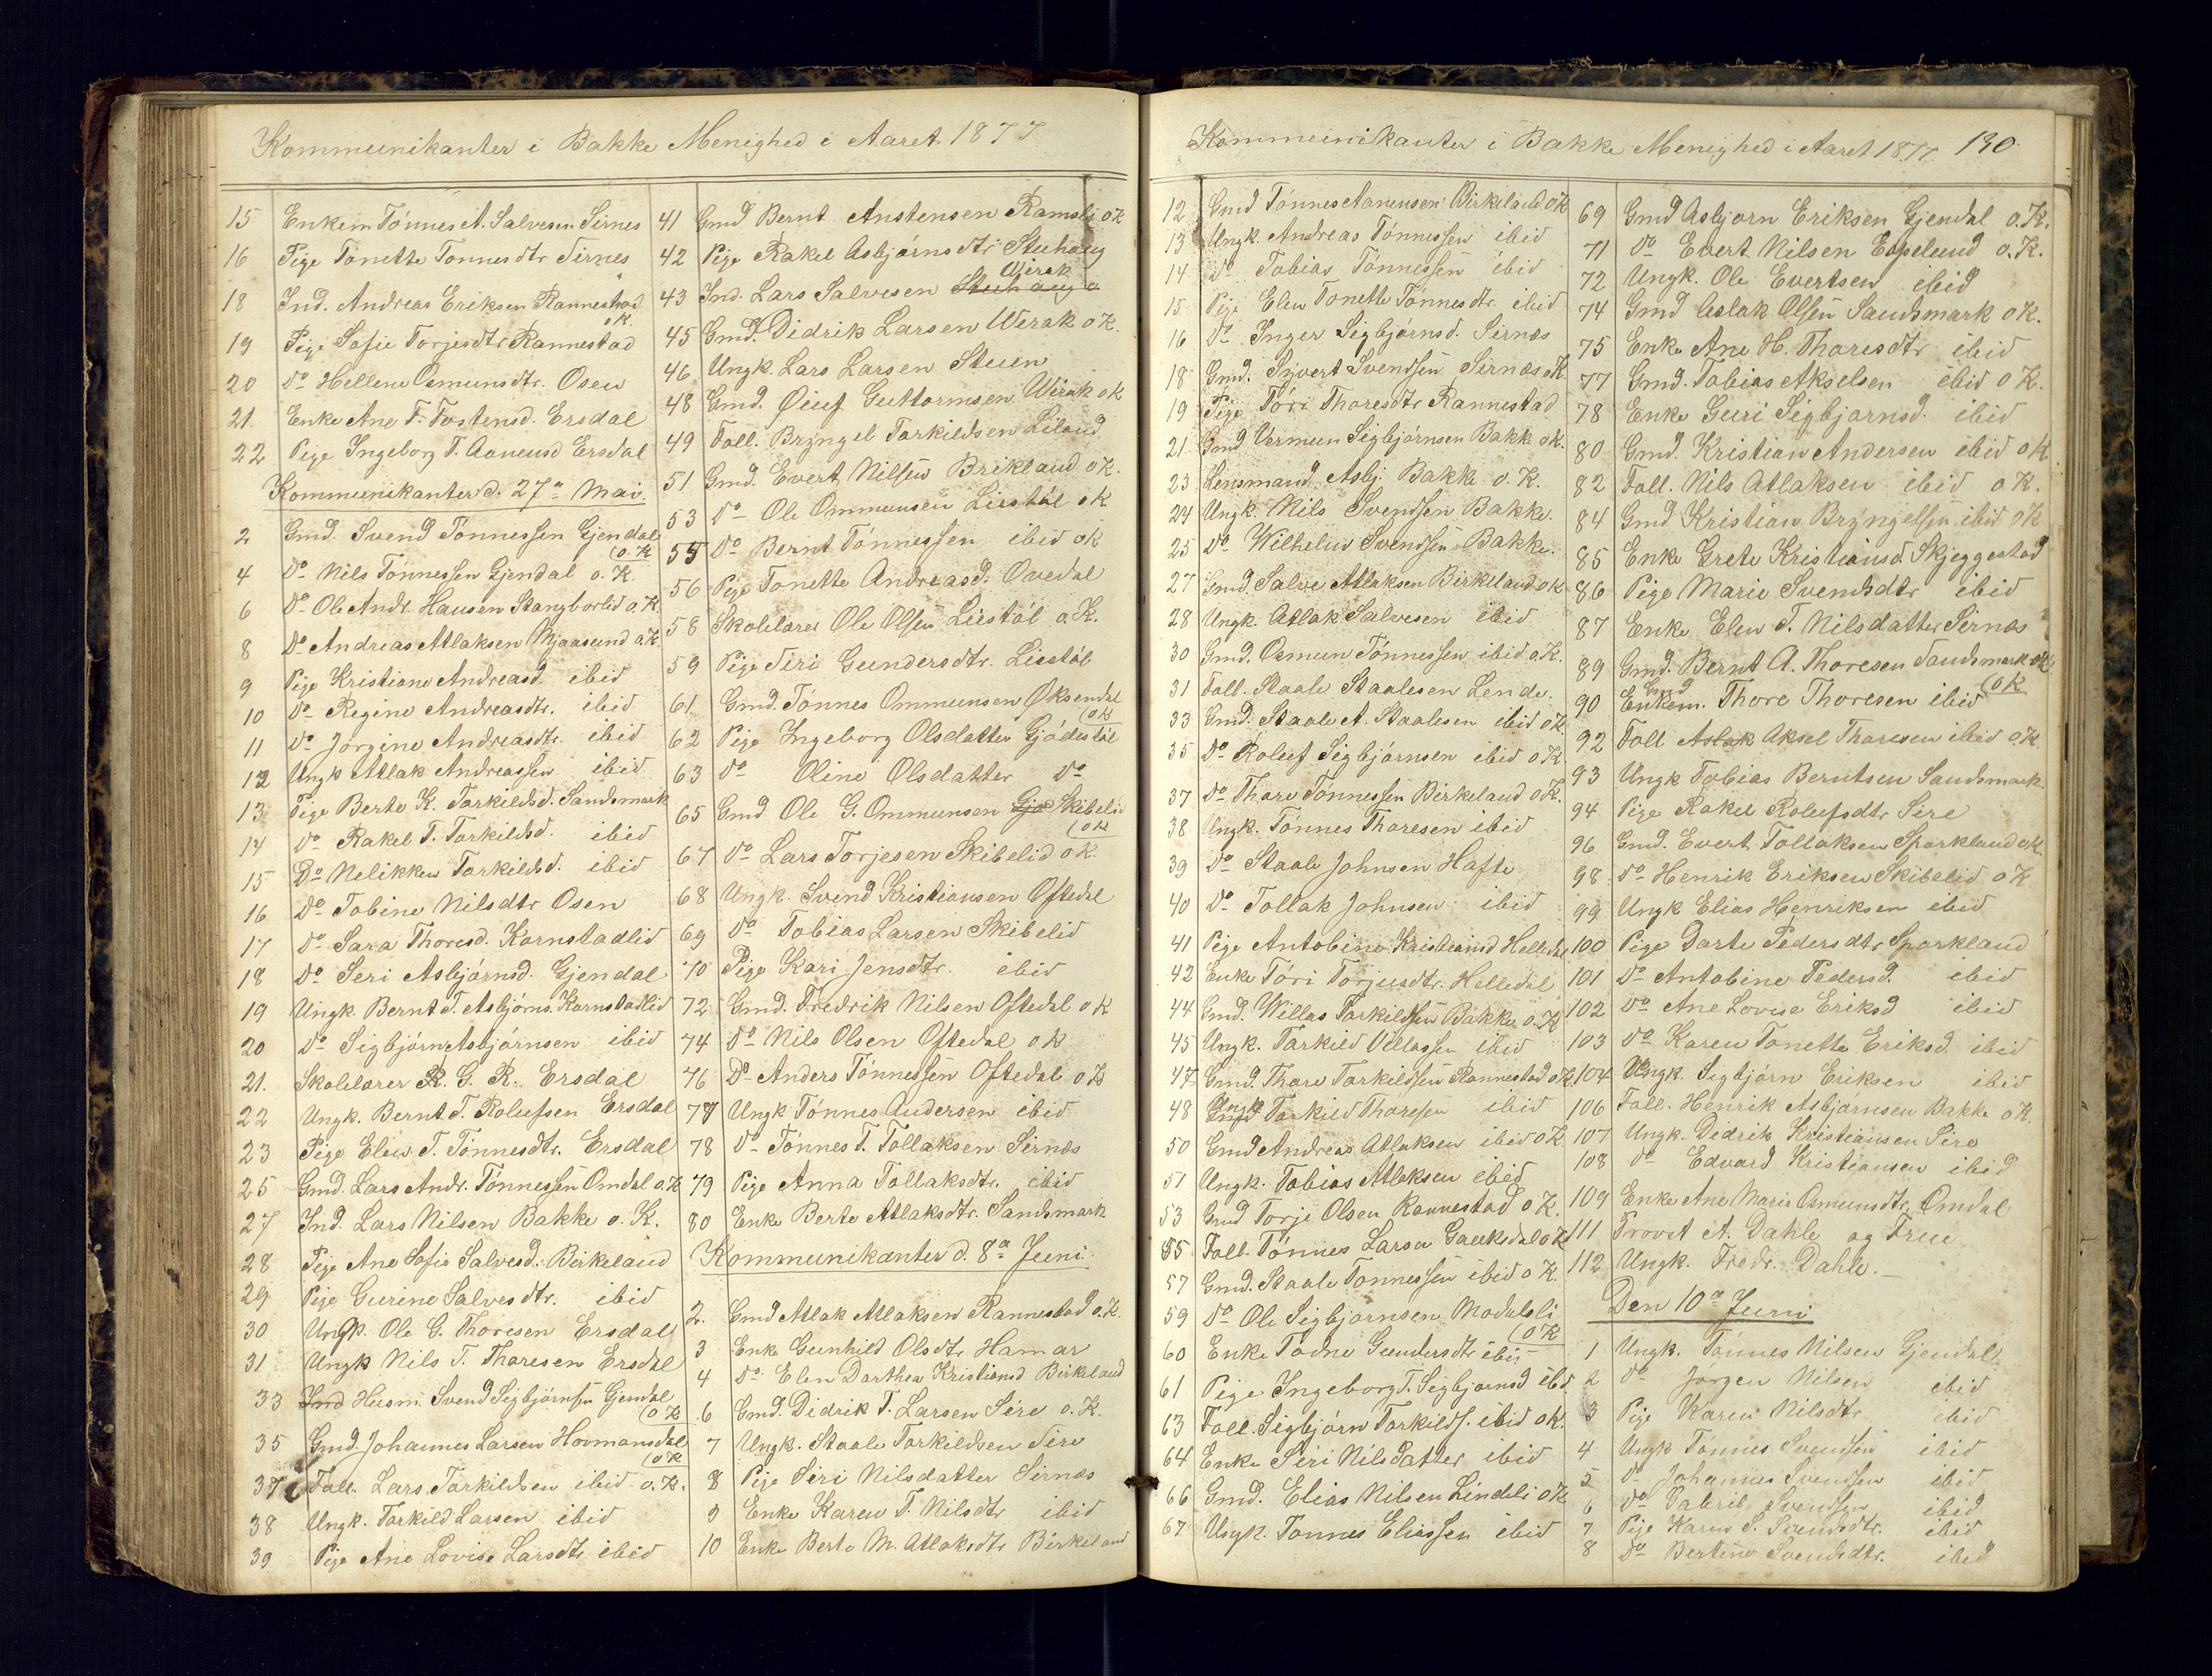 Kommunikanter i Bakke Menighed i Aaret 1877
15 Enkem Tónnes A. Salvesen Sirnes
16 Pige Tonette Tonnesdtr Sirnes
18 Ind. Andreas Eriksen Rannestad
o K.
19 Pige Sofie Torjesdtr Rannestad
20 Do Hellene Osmunsdtr. Osen
21. Enke Ane T. Tostensd. Ersdal
22 Pige Ingeborg T. Aanensd Ersdal
Kommunikanter d. 27de Mai.
2 Gmd. Svend Tönnessen Gjendal
(o. K
4 Do Nils Tönnessen Gjendal o. K.
6 Do Ole Andr. Hansen Stangborlid o. K.
8 Do Andreas Atlaksen Mjaasund o. K.
9 Pige Kristiane Andreasd. ibid
10 Do Regine Andreasdtr. ibid
11 Do Jörgine Andreasdtr. ibid
12 Ungk Atlak Andreassen ibid
13 Pige Berte K. Tarkildsd. Sandsmark
14 Do Rakel T. Tarkildsd. ibid
15 Do Nelikken Tarkildsd. ibid
16 Do Tobine Nilsdtr Osen
17 Do Sara Thoresd. Karnstadlid
18 Do Seri Asbjörnsd. Gjendal
19 Ungk. Bernt T. Asbjörns. Karnstadlid
20 Do Sigbjörn Asbjörnsen ibid
21. Skolelærer R. G. R. Ersdal
22 Ungk. Bernt T. Roleifsen Ersdal
23 Pige Elen T. Tönnesdtr. Ersdal
25 Gmd. Lars Andr. Tönnessen Omdal o. K
27 Ind. Lars Nilsen Bakke o. K.
28 Pige Ane Sofie Salvesd. Birkeland
29 Pige Gurine Salvesdtr. ibid
30 Ungk. Ole G. Thoresen Ersdal
31 Ungk Nils T. Tharesen Ersdal
33 Ind Husm. Svend Sigbjörnsen Gjendal
(o K
35 Gmd. Johannes Larsen Hovmansdal
(o K
37 Foll. Lars Tarkildsen ibid o. K.
38 Ungk. Tarkild Larsen ibid
39 Pige Ane Lovise Larsdtr. ibid
41 Gmd Bernt Anstensen Ramsli o K
42 Pige Rakel Asbjörnsdtr Stuhaug
Virak
43 Ind. Lars Salvesen Stuhaug
45 Gmd. Didrik Larsen Virak o K.
46 Ungk. Lars Larsen Stuen
48 Gmd. Öiuf Guttormsen Virak o K
49 Foll. Bryngel Tarkildsen Liland
51 Gmd. Evert Nilsen Brikland o K.
53 Do Ole Ommunsen Liestöl o K
55 Do Bernt Tönnessen ibid o K
56 Pige Tonette Andreasd. Ovedal
58 Skolelærer Ole Olsen Liestöl o. K.
59 Pige Siri Gundersdtr. Liestöl
61 Gmd. Tönnes Ommunsen Øksendal
(o K
62 Pige Ingeborg Olsdatter Gjödestöl
63 Do Oline Olsdatter Do
65 Gmd Ole G. Ommunsen Gjö Skibelid
(o K
67 Do Lars Torjesen Skibelid o K.
68 Ungk. Svend Kristiansen Oftedal
69 Do Tobias Larsen Skibelid
70 Pige Kari Jensdtr. ibid
72 Gmd. Fredrik Nilsen Oftedal o K
74 Do Nils Olsen Oftedal o K
76 Do Anders Tönnessen Oftedal o K
77 Ungk Tönnes Andersen ibid
78 Do Tönnes T. Tollaksen Sirnæs
79 Pige Anna Tollaksdtr. ibid
80 Enke Berte Atlaksdtr. Sandsmark
Kommunikanter d. 8de Juni
2. Gmd Atlak Atlaksen Rannestad o. K.
3 Enke Gunhild Olsdtr Hamar
4 Do Elen Darthea Kristiansd Birkeland
6 Gmd. Didrik T. Larsen Sire o. K.
7 Ungk. Staale Tarkildsen Sire
8 Pige Siri Nilsdatter Sirnæs
9 Enke Karen T. Nilsdtr ibid
10 Enke Berte M. Atlaksdtr Birkeland
Kommunikanter i Bakke Menighed i Aaret 1877. 130.
12 Gmd Tónnes Aanensen Birkeland o K
13 Ungk. Andreas Tónnessen ibid
14 Do Tobias Tónnessen ibid
15 Pige Elen Tonette Tónnesdtr. ibid
16 Do Inger Sigbjörnsd. Sirnæs
18 Gmd. Syvert Svendsen Sirnæs o K
19 Pige Töri Tharesdtr Rannestad
21 Gmd Vermun Sigbjörnsen Bakke o K.
23 Lensmand Asbj. Bakke o. K.
24 Ungk. Nils Svendsen Bakke.
25 Do Wilhelm Svendsen Bakke.
27 Gmd. Salve Atlaksen Birkeland o K
28 Ungk. Atlak Salvesen ibid
30 Gmd. Osmun Tönnessen ibid o. K.
31 Foll. Staale Staalesen Lende.
33 Gmd. Staale A. Staalesen ibid o K
35 Do Roleif Sigbjörnsen ibid o K.
37 Do Thare Tönnessen Birkeland o K.
38 Ungk. Tönnes Tharesen ibid
39 Do Staale Johnsen Hafte
40 Do Tollak Johnsen ibid
41 Pige Antobine Kristiansd Helledal
42 Enke Töri Torjusdtr. Helledal
44 Gmd. Willas Tarkildsen Bakke o. K
45 Ungk. Tarkild Villassen ibid
47 Gmd. Thare Tarkildsen Rannestad o K.
48 Ungk Tarkild Tharesen ibid
50 Gmd Andreas Atlaksen ibid o K
51 Ungk. Tobias Atlaksen ibid
53 Gmd Torje Olsen Rannestad o K.
55 Foll. Tönnes Larsen Gauksdal o K
57 Gmd. Staale Tönnessen ibid o K.
59 Do Ole Sigbjörnsen Modalsli
(o K
60 Enke Todne Gundersdtr ibid
61 Pige Ingeborg T. Sigbjörnsd ibd
63 Foll. Sigbjörn Tarkilds. ibid o K.
64 Enke Siri Nilsdatter ibid
66 Gmd. Elias Nilsen Lindeli o K
67 Ungk. Tönnes Eliassen ibid
69 Gmd Asbjörn Eriksen Gjendal o. K.
71 Do Evert Nilsen Espelund o. K.
72 Ungk. Ole Evertsen ibid
74 Gmd Aslak Olsen Sandsmark o K.
75 Enke Ane H. Tharesdtr ibid
77 Gmd. Tobias Akselsen ibid o K.
78 Enke Guri Sigbjörnsd. ibid
80 Gmd. Kristian Andersen ibid o K
82 Foll. Nils Atlaksen ibid o K.
84 Gmd Kristian Bryngelsen ibid o K
85 Enke Grete Kristiansd. Skjeggestad
86 Pige Marie Svendsdtr ibid
87 Enke Elen T. Nilsdatter Sirnæs
89 Gmd. Bernt A. Thoresen Sandsmark o K
90 Enkem. Thore Thoresen ibid (o K
92 Foll Aslak Aksel Tharesen ibid o. K.
93 Ungk Tobias Berntsen Sandsmark
94 Pige Rakel Roleifsdtr Sire
96 Gmd. Evert Tollaksen Sparkland o K.
98 Do Henrik Eriksen Skibelid o K
99 Ungk Elias Henriksen ibid
100 Pige Darte Pedersdtr Sparkland
101 Do Antobine Pedersd. ibid
102 Do Ane Lovise Eriksd ibid
103 Do Karen Tonette Eriksd. ibid
104 Ungk. Sigbjörn Eriksen ibid
106 Foll. Henrik Asbjörnsen Bakke o K.
107 Ungk. Dedrik Kristiansen Sire
108 Do Edvard Kristiansen ibid
109 Enke Ane Marie Osmunsdtr. Omdal
111 Provst A. Dahle og Frue
112 Ungk. Fredr. Dahle.
Den 10de Juni
1 Ungk. Tönnes Nilsen Gjendal
2 Do Jörgen Nilsen ibid
3 Pige Karen Nilsdtr ibid
4 Ungk Tönnes Svendsen ibid
5 Do Johannes Svendsen ibid
6 Do Gabriel Svendsen ibid
7 Pige Karen S. Svendsdtr. ibid
8 Do Bertine Svendsdtr. ibid